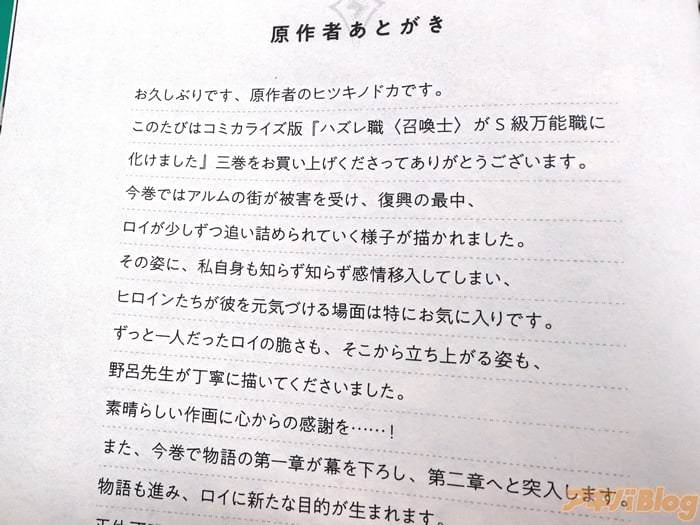 原作者あとがき
お久しぶりです、原作者のヒツキノドカです。
このたびはコミカライズ版『ハズレ職〈召喚士〉がS級万能職に
化けました』三巻をお買い上げくださってありがとうございます。
今巻ではアルムの街が被害を受け、復興の最中、
ロイが少しずつ追い詰められていく様子が描かれました。
その姿に、私自身も知らず知らず感情移入してしまい、
ヒロインたちが彼を元気づける場面は特にお気に入りです。
ずっと一人だったロイの脆さも、そこから立ち上がる姿も、
野呂先生が丁寧に描いてくださいました。
素晴らしい作画に心からの感謝を……！
また、今巻で物語の第一章が幕を下ろし、第二章へと突入します。
物語も進み、ロイに新たな目的が生まれます。
アキバBlog